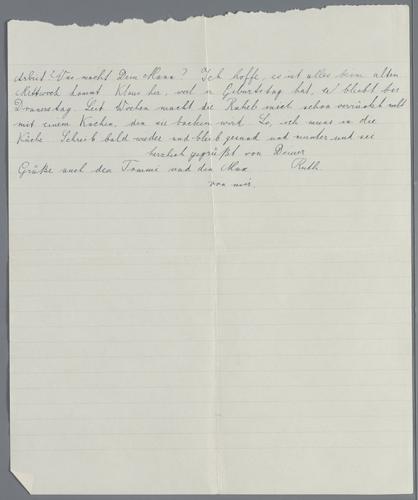 Arbeit? Was macht Dein Mann? Ich hoffe, es ist alles beim alten.
Mittwoch kommt Klaus her, weil er Geburtstag hat, er bleibt bis
Donnerstag. Seit Wochen macht die Rahel mich schon verrückt
mit einem Kuchen, den sie backen wird. So, ich muss in die
Küche. Schreib bald wieder und bleib gesund und munter und sei
herzlich gegrüßt von Deiner
Grüße auch den Tommi und den Max Ruth.
von mir.